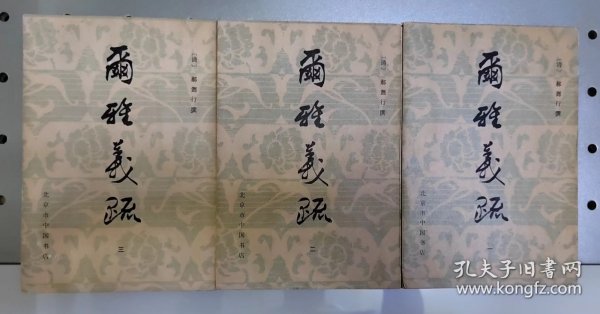 爾雅義疏
〔清〕郝懿行撰
北京市中国书店
三
爾雅義疏
〔清〕郝懿行撰
北京市中国书店
二
爾雅義疏
〔清〕郝懿行撰
北京市中国书店
一
孔夫子旧书网
www.kongfz.com